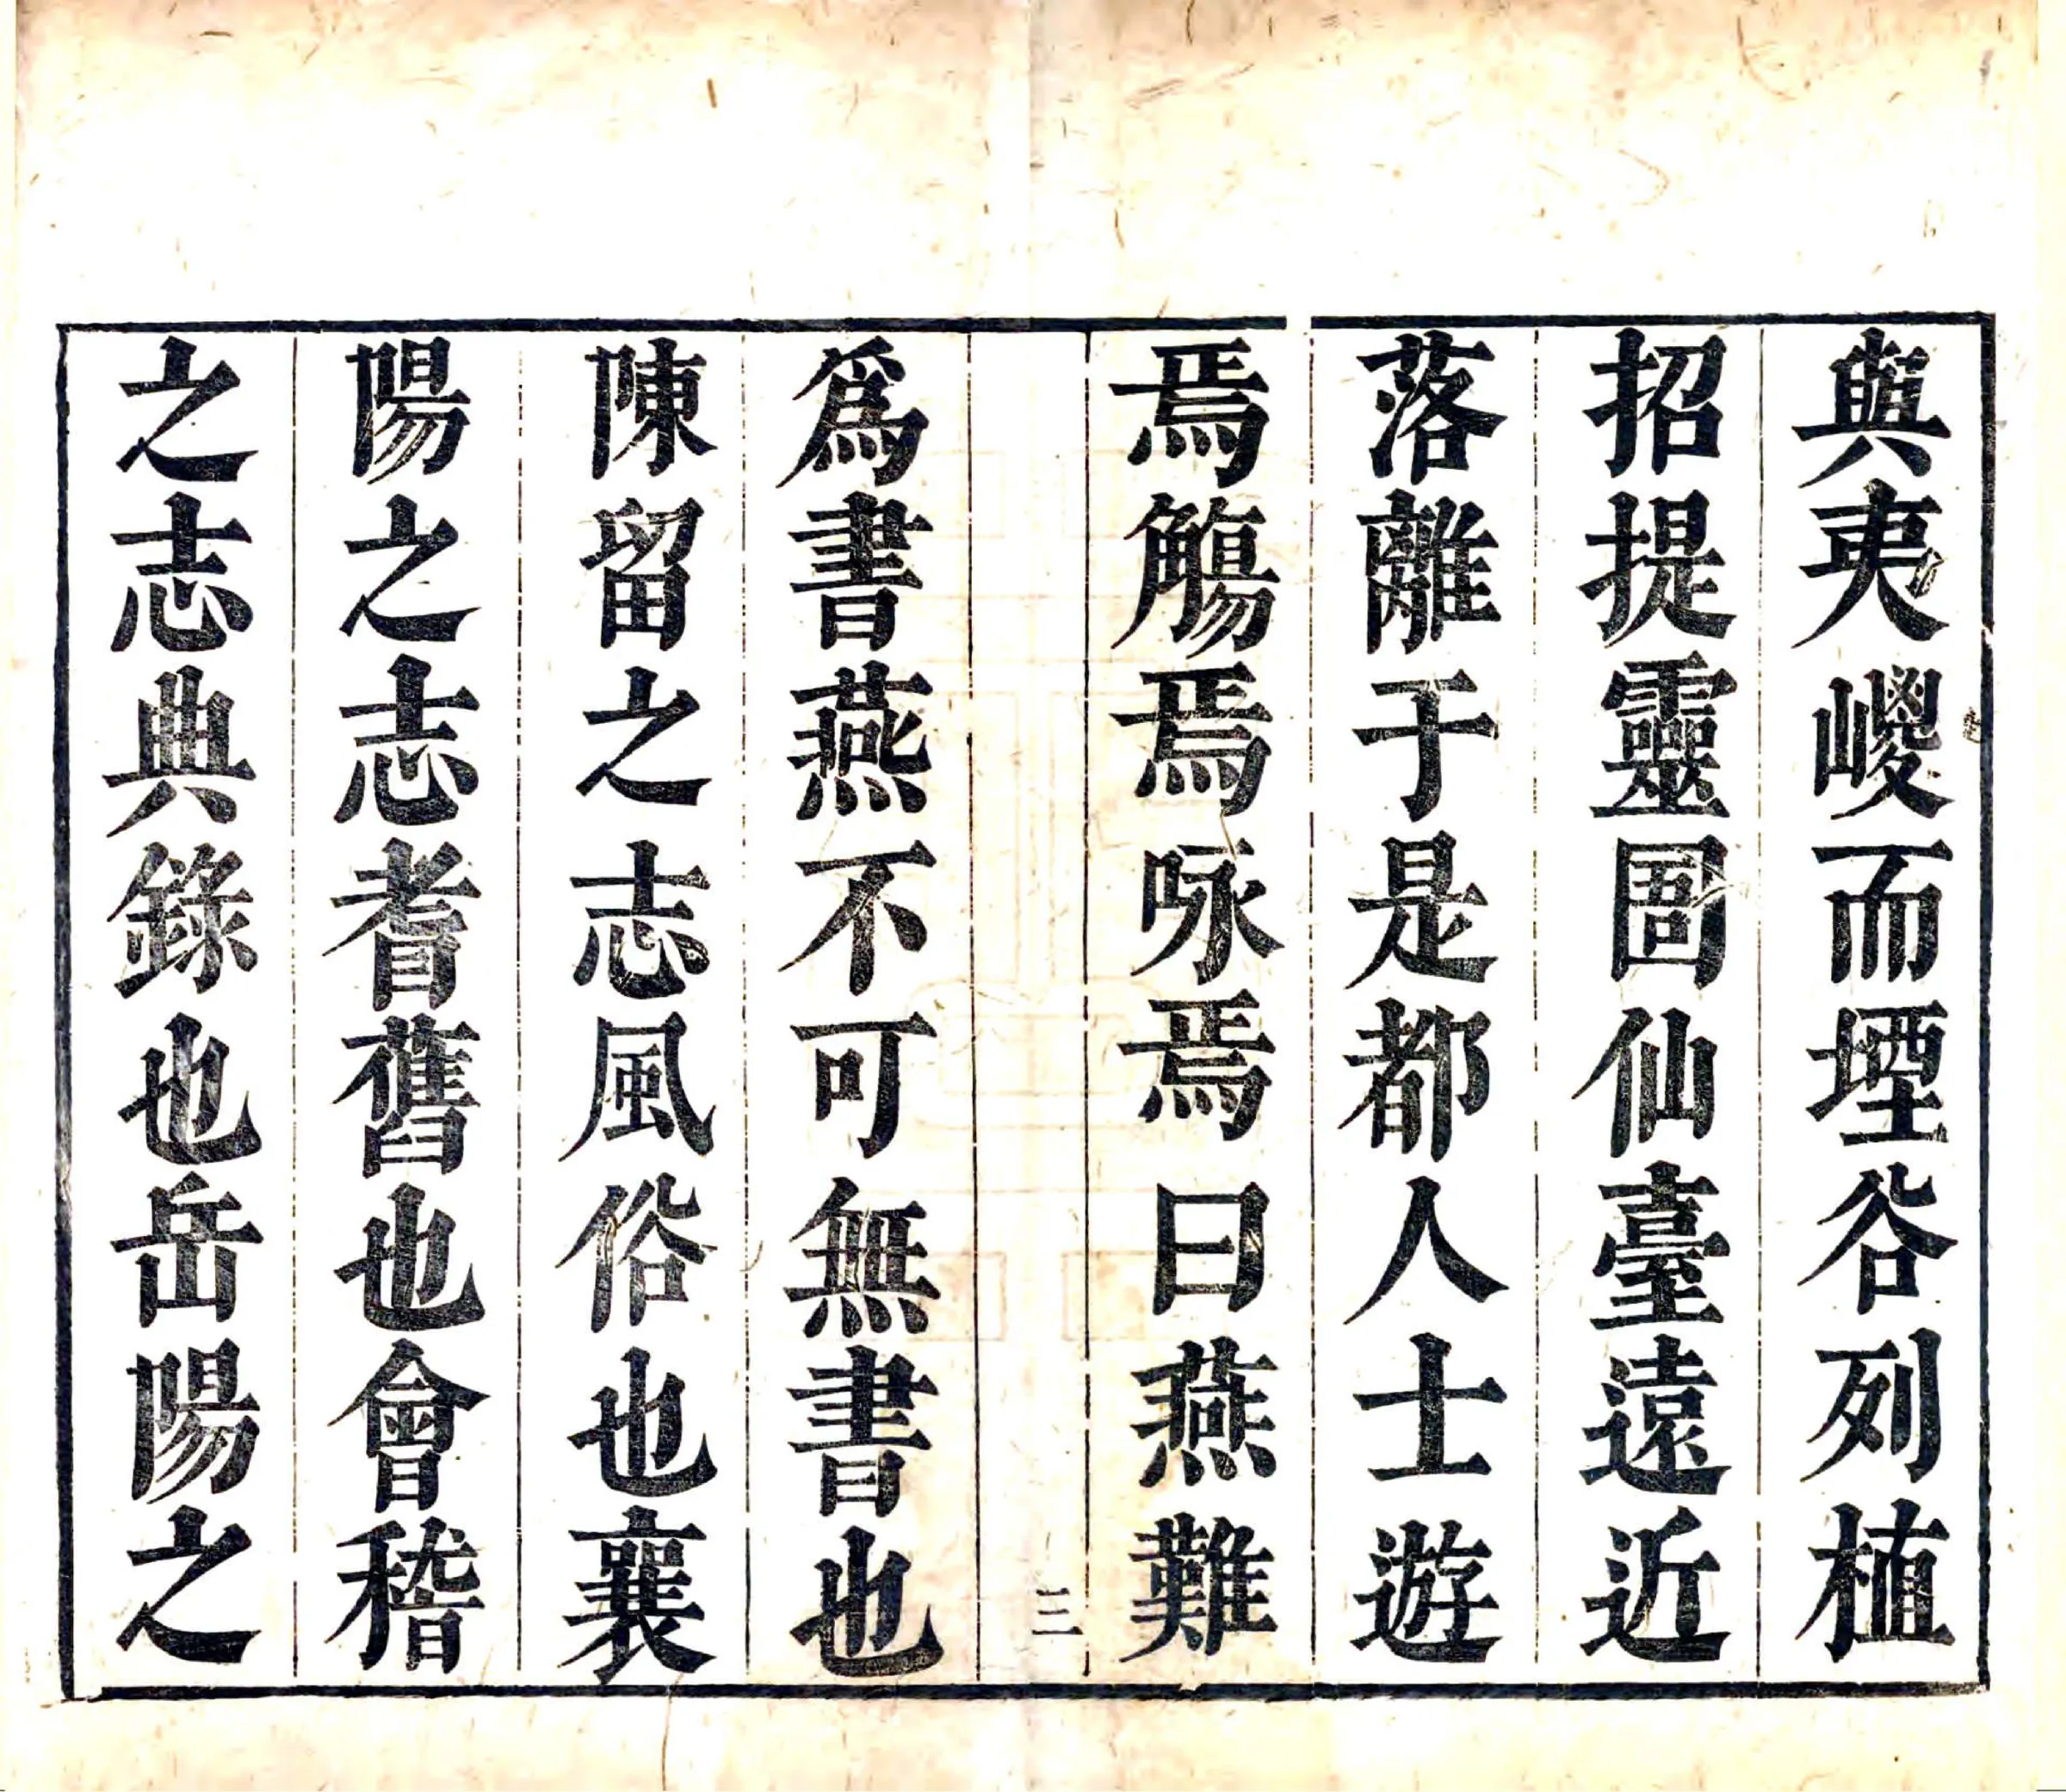 與夷嵕而堙谷列植
招提靈圄仙臺遠近
落離于是都人士遊
焉觴焉咏焉曰燕難
三
爲書燕不可無書也
陳留之志風俗也襄
陽之志耆舊也會稽
之志典錄也岳陽之